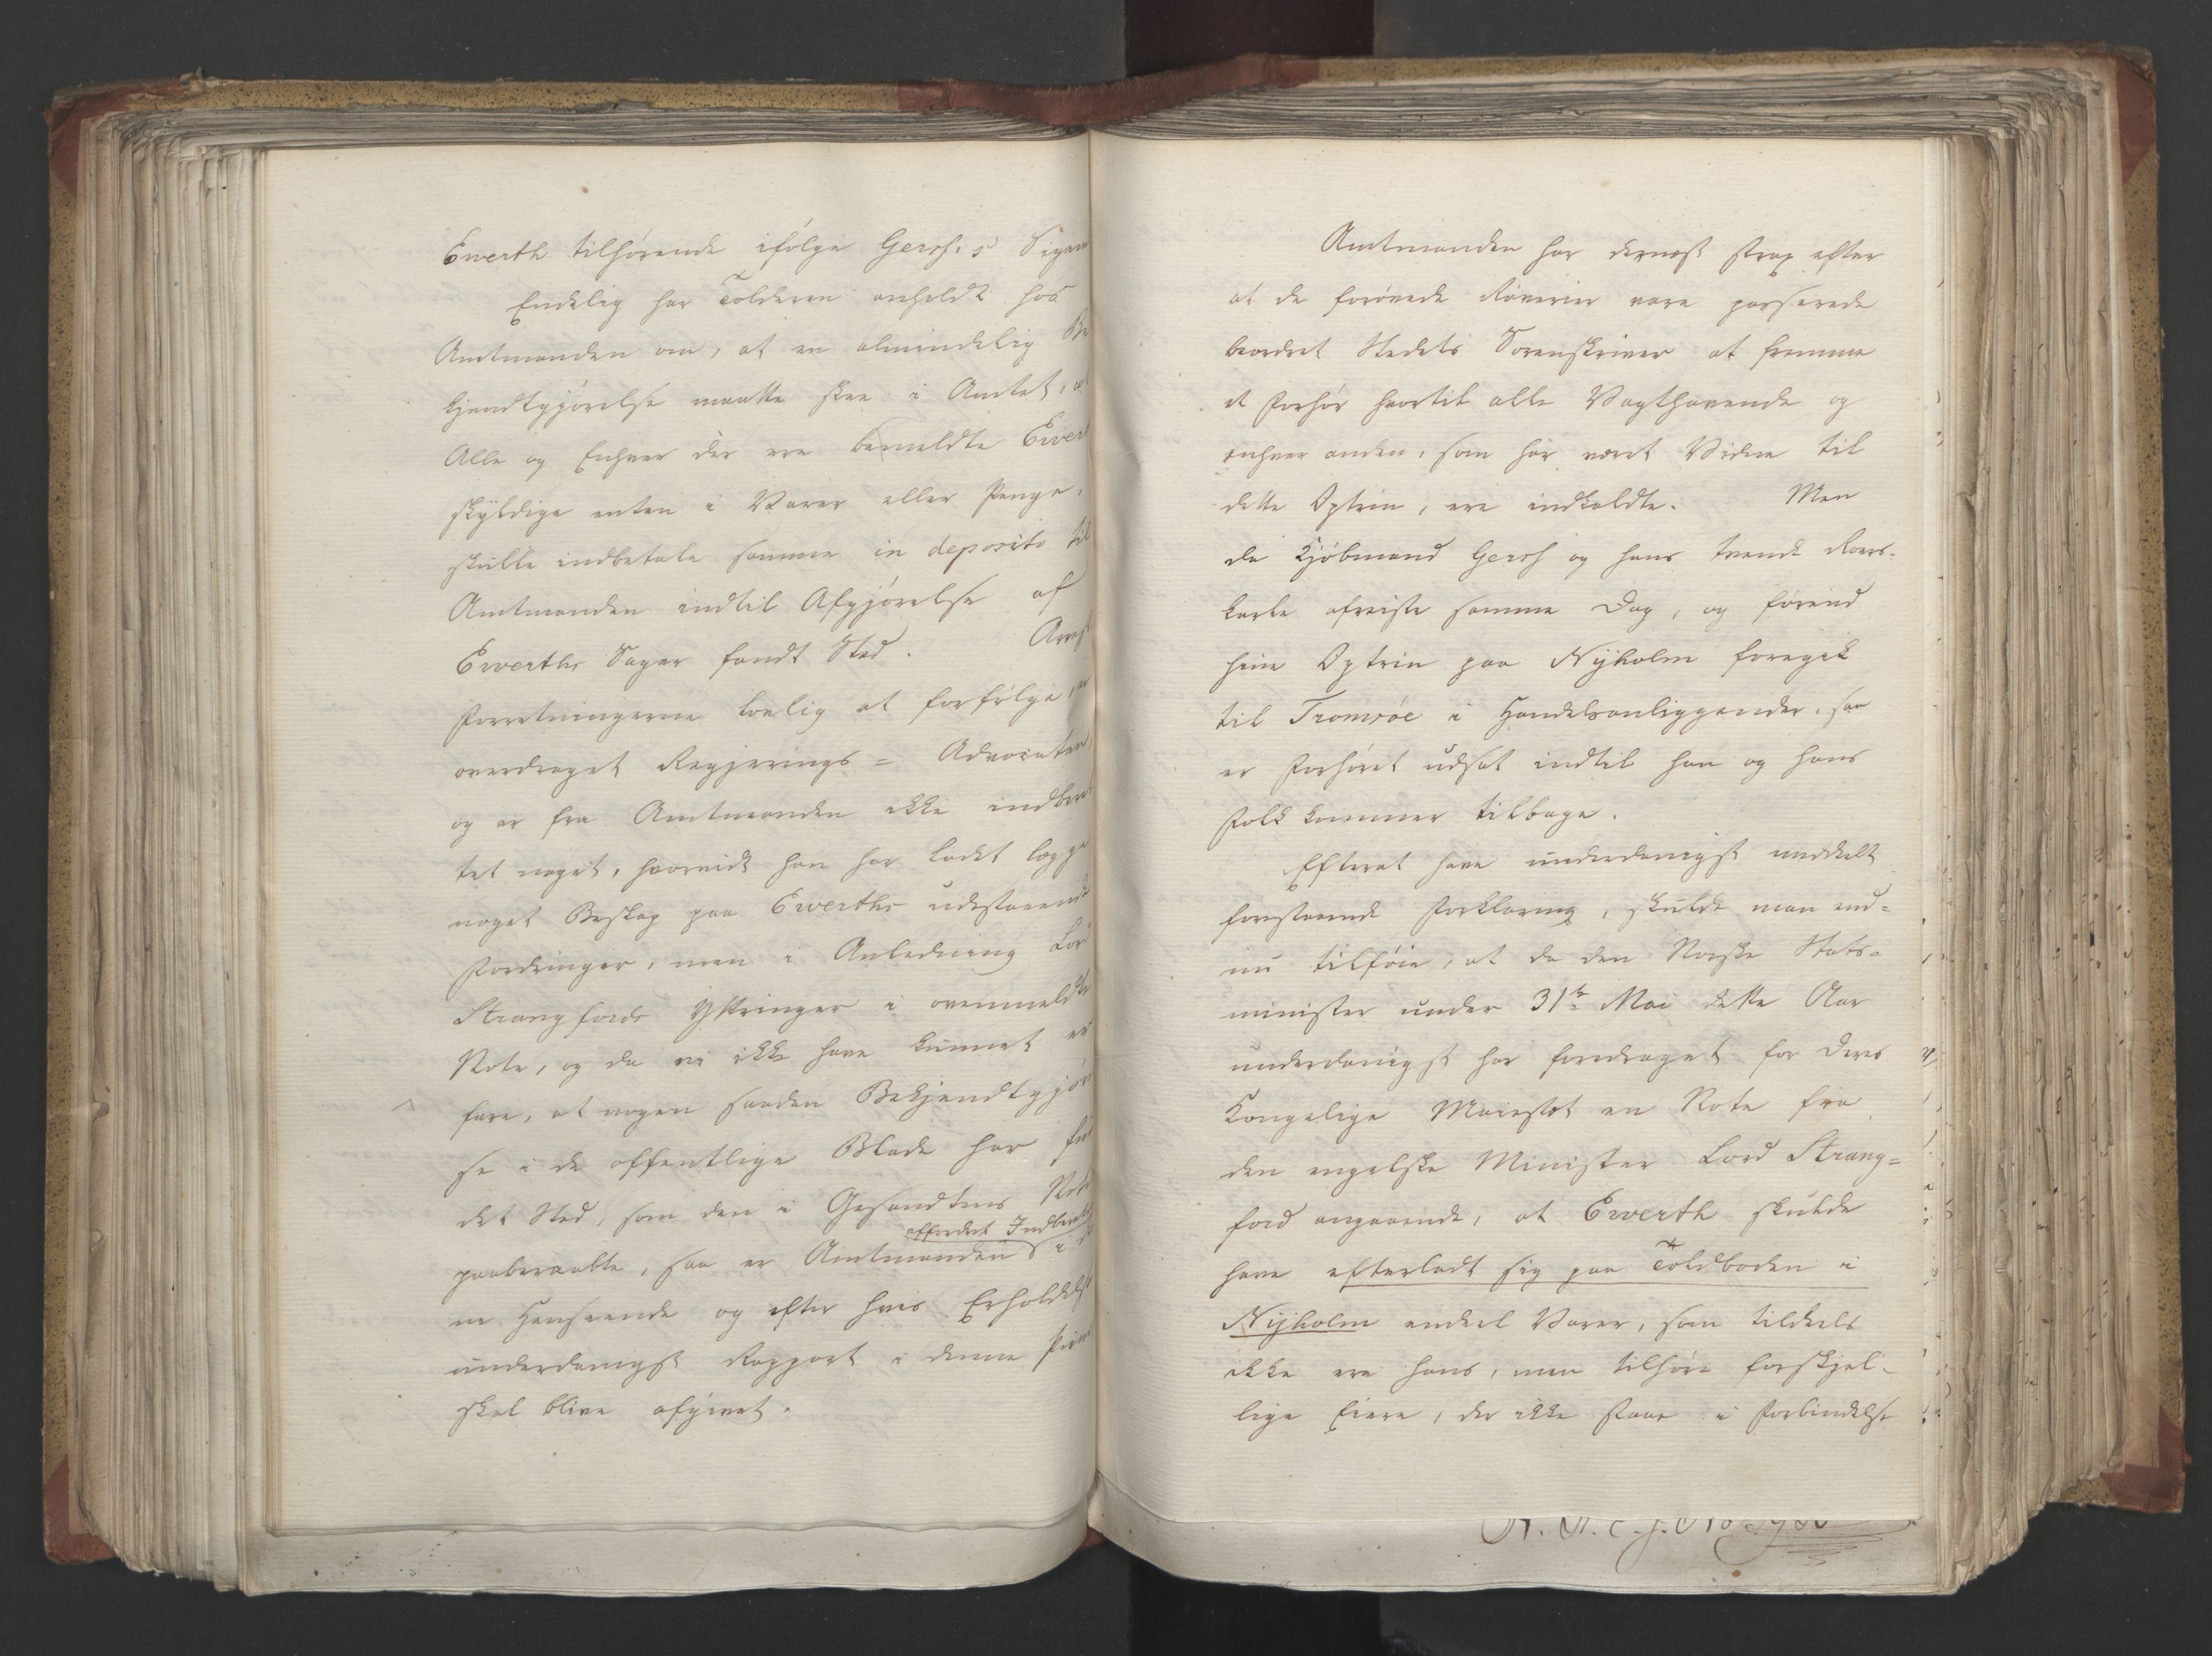 Ewerth tilhørende ifølge Gersh.s Sigen
Endelig har Tolderen anholdt hos
Amtmanden om, at en almindelig Be
kjendtgjørelse maatte skee i Amtet, at
Alle og Enhver der ere bemeldte Ewert
skyldige enten i Varer eller Penge,
skulle indbetale samme in deposito til
Amtmanden indtil Afgjørelse af
Ewerths Sager fandt Sted. Arrest
Forretningerne lovlig at forfølge, er
overdraget Regjerings= Advocaten,
og er fra Amtmanden ikke indberet
tet noget, hvorvidt han har ladet lægge
noget Beslag paa Ewerths udestaaende
Fordringer, men i Anledning Lord
Strangfords Yttringer i ovenmeldte
Note, og da vi ikke have kunnet er
fare, at nogen saadan Bekjendtgjørel
se i de offentlige Blade har fun
det Sted, som den i Gesandtens Note
affordret Indberetn
paaberaabte, saa er Amtmanden i den
ne Henseende og efter hvis Erholdelse
underdanigst Rapport i denne Punct
skal blive afgivet.
Amtmanden har dernæst strax efter
at de forøvede Røverier vare passerede
beordret Stedets Sorenskriver at fremme
et Forhør hvortil alle Vagthavende og
enhver anden, som har været Vidne til
dette Optrin, ere indkaldte. Men
da Kjøbmand Gersh og hans tvende Roers-
karle afreiste samme Dag, og førend
hine Optrin paa Nyholm foregik
til Tromsøe i Handelsanliggender, saa
er Forhøret udsat indtil han og hans
Folk kommer tilbage.
Efterat have underdanigst meddelt
forestaaende Forklaring, skulde man end=
nu tilføie, at da den Norske Stats=
minister under 31te Mai dette Aar
underdanigst har foredraget for Deres
Kongelige Maiestæt en Note fra
den engelske Minister Lord Strang=
ford angaaende, at Ewerth skulde
have efterladt sig paa Toldboden i
Nyholm endeel Varer, som tildeels
ikke ere hans, men tilhøre forskjel-
lige Eiere, der ikke staae i Forbindelse